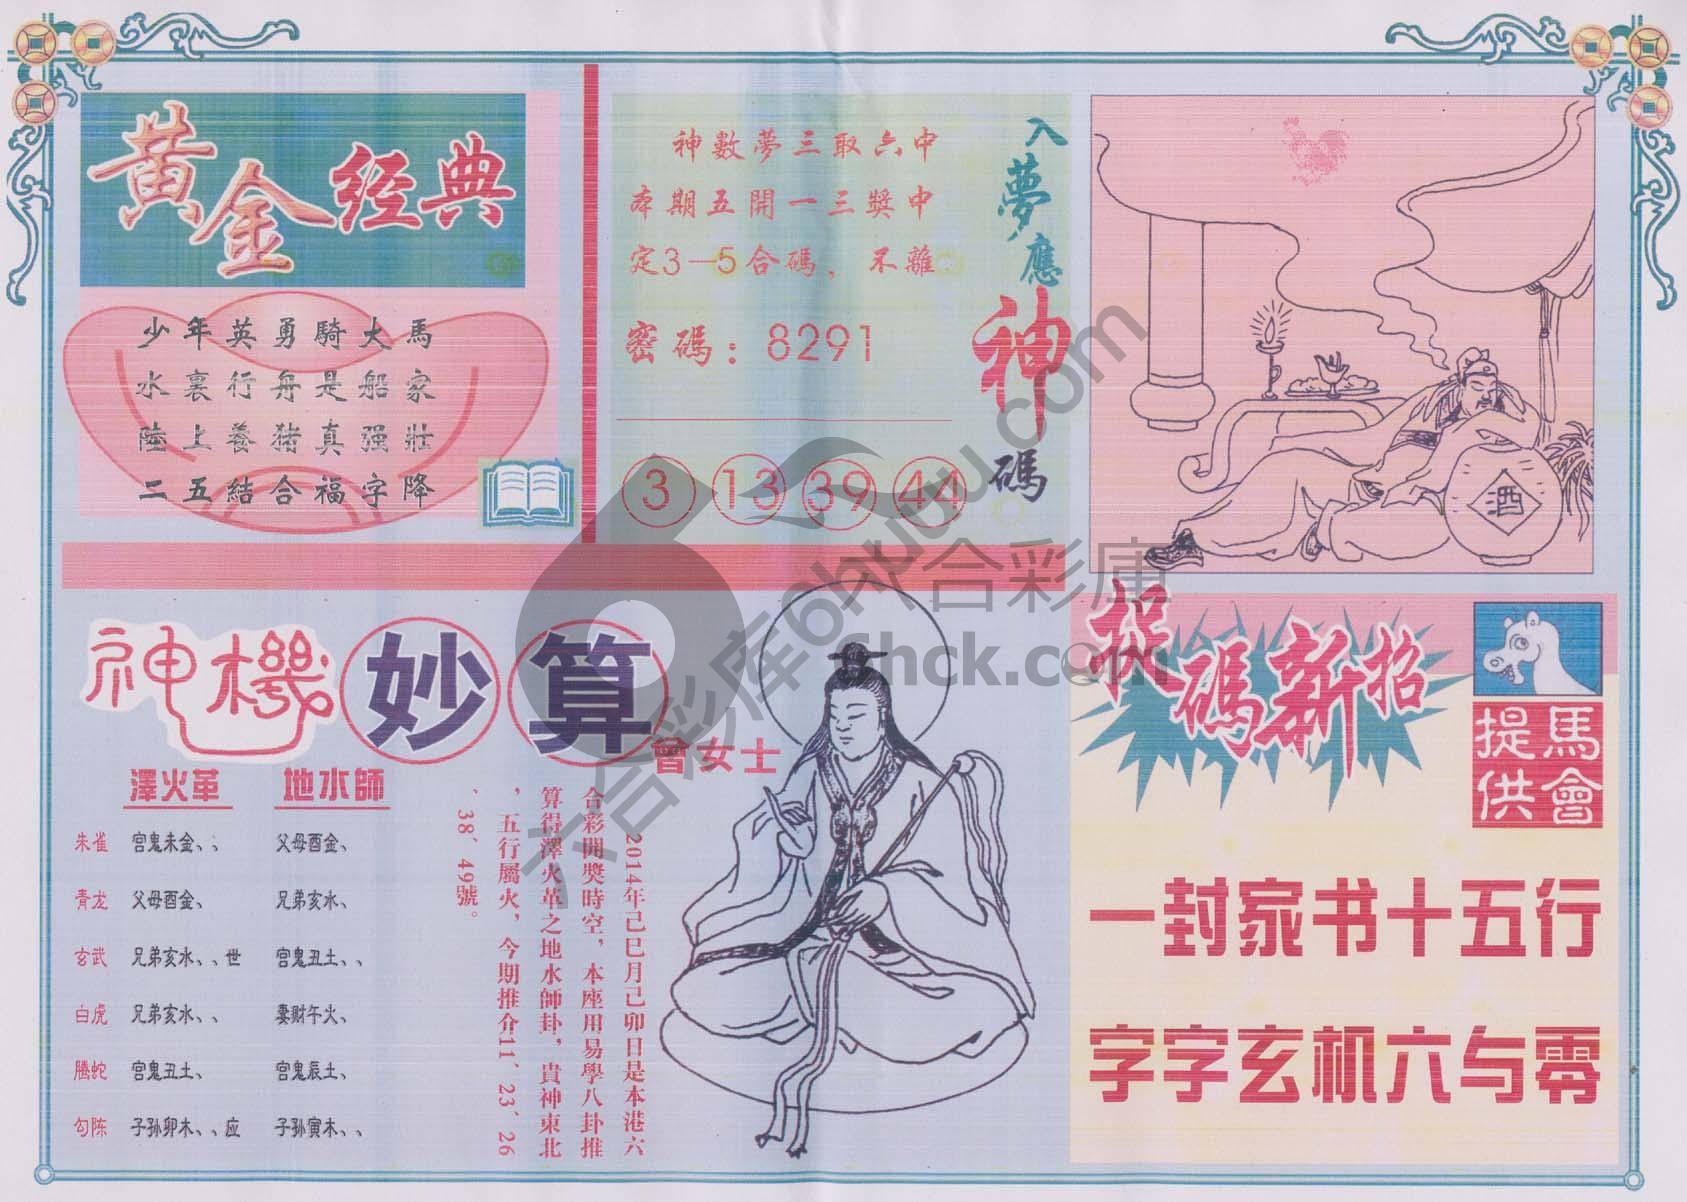 黄金经典
少年英勇騎大馬
水裏行舟是船家
陸上養猪真强壯
二五結合福字降
神數夢三取六中
本期五開一三獎中
定3—5合碼、不離
密碼：8291
3 13 39 44
入夢應神碼
酒
神機妙算
曾女士
澤火革 地水師
朱雀 宫鬼未金、、 父母酉金、
青龙 父母酉金、 兄弟亥水、
玄武 兄弟亥水、、世 宫鬼丑土、、
白虎 兄弟亥水、、 妻財午火、
騰蛇 宫鬼丑土、 宫鬼辰土、
勾陈 子孙卯木、、应 子孙寅木、、
2014年己巳月己卯日是本港六
合彩開獎時空，本座用易學八卦推
算得澤火革之地水師卦，貴神東北
，五行屬火，今期推介11、23、26
、38、49號。
捉碼新招
馬會提供
一封家书十五行
字字玄机六与零
六合彩库6hupu.com
六合彩庫
6hck.com